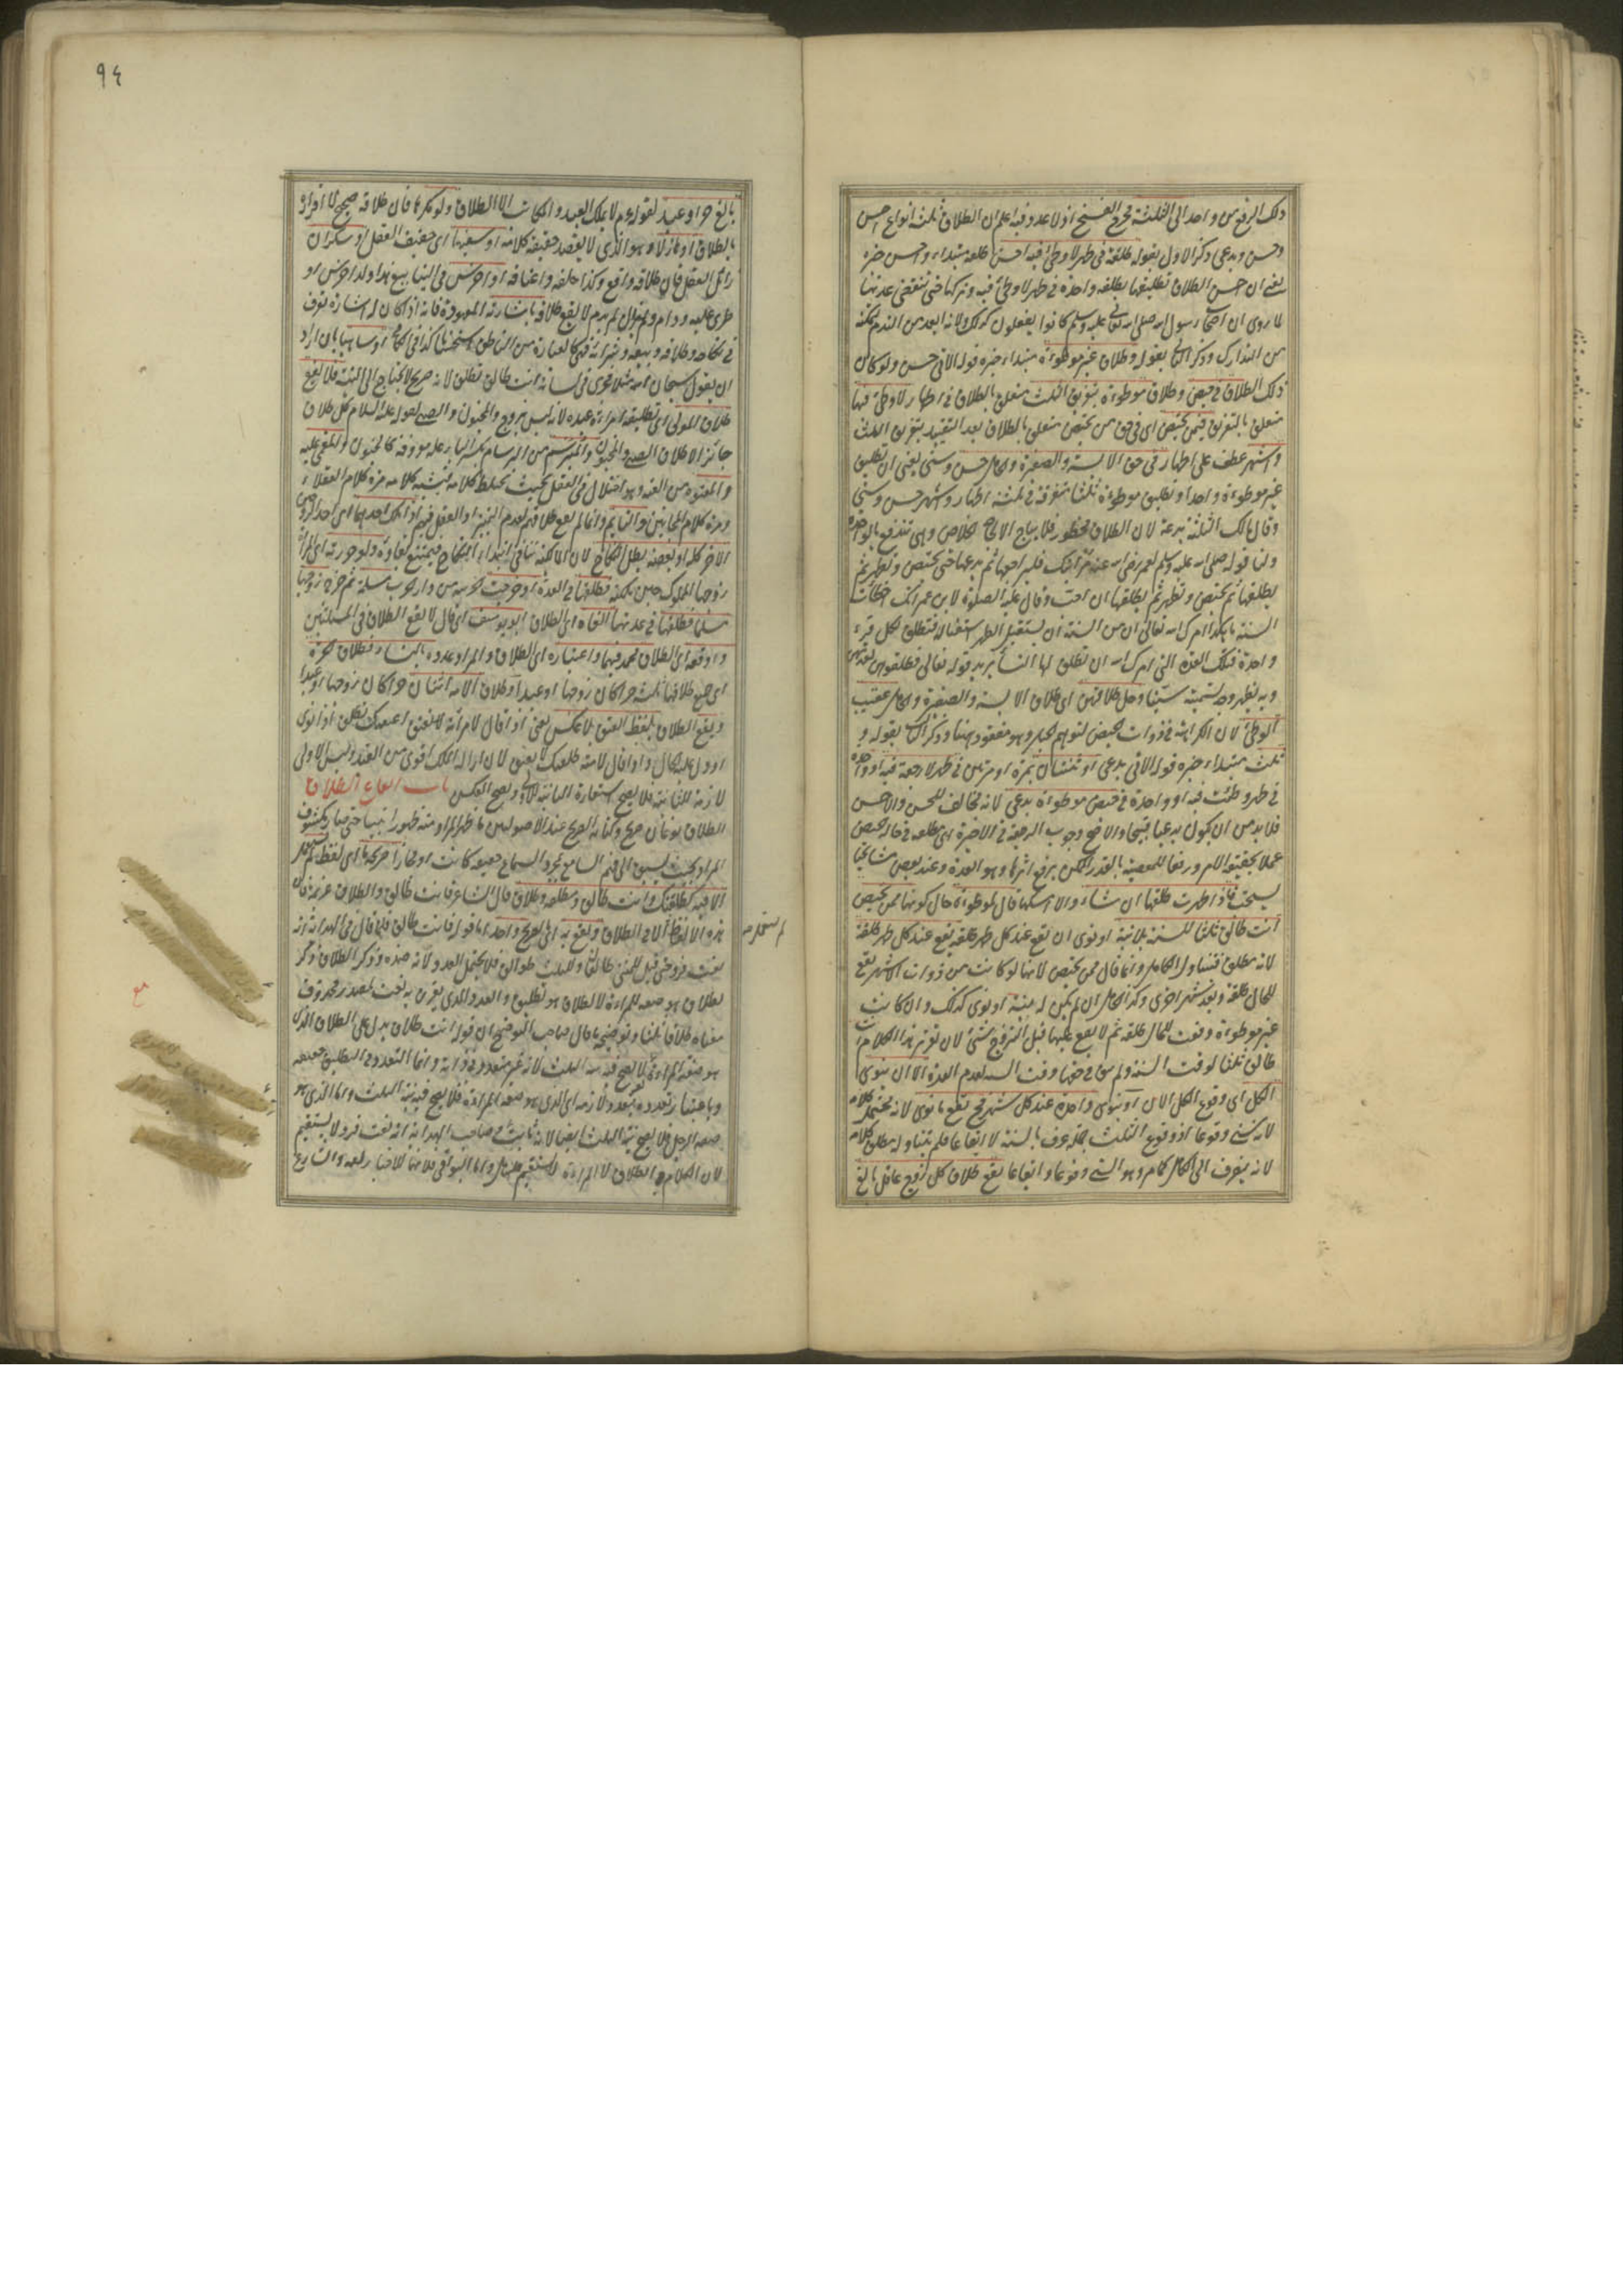 ذلك الرفع من واحد الى الثلثة فخرج الفسخ اذ لا عدد فيه اعلم ان الطلاق ثلثة انواع احسن
وحسن وبدعى وذكر الاول بقوله طلقة فى طهر لا وطئ فيه احسن طلقة مبتداء واحسن خبره
يعنى ان احسن الطلاق تطليقها بطلقة واحدة فى طهر لا وطئ فيه وتركها حتى تنقضى عدتها
لما روى ان اصحاب رسول الله صلى الله تعالى عليه وسلم كانوا يفعلون كذلك ولانه ابعد من الندم لتمكنه
من التدارك وذكر الثانى بقوله وطلاق غير موطوءة مبتداء خبره قوله الاتى حسن ولو كان
ذلك الطلاق فى حيض وطلاق موطوءة بتفريق الثلث متعلق بالطلاق فى اطهار لا وطئ فيها
متعلق بالتفريق فيمن تحيض اى فى حق من تحيض متعلق بالطلاق بعد التقييد بتفريق الثلث
واشهر عطف على اطهار فى حق الآيسة والصغيرة والحامل حسن وسنى يعنى ان تطليق
غير موطوءة واحدا وتطليق موطوءة ثلثا متفرقة فى ثلثة اطهار واشهر حسن وسنى
وقال مالك الثلثة بدعة لان الطلاق محظور فلا يباح الا لحاجة الخلاص وهى تندفع بالواحدة
ولنا قوله صلى الله عليه وسلم لعمر رضى الله عنه مر ابنك فليراجعها ثم يدعها حتى تحيض وتطهر ثم
يطلقها ثم تحيض وتطهر ثم يطلقها ان احب وقال عليه الصلوة لابن عمر انك اخطات
السنة ما هكذا امرك الله تعالى ان من السنة ان يستقبل الطهر استقبالا فتطلق لكل قرء
واحدة فتلك العدة التى امرك الله ان تطلق لها النساء يريد قوله تعالى فطلقوهن لعدتهن
وبه يظهر وجه تسميته سنيا وحل طلاقهن اى طلاق الآيسة والصغيرة والحامل عقيب
الوطئ لان الكراهة فى ذوات الحيض لتوهم الحبل وهو مفقود هنا وذكر الثالث بقوله و
ثلث مبتداء خبره قوله الاتى بدعى او ثنتان بمرة او مرتين فى طهر لا رجعة فيه او واحدة
فى طهر وطئت فيه او واحدة فى حيض موطوءة بدعى لانه مخالف للحسن والاحسن
فلا بد من ان يكون بدعيا قبيحا والاصح وجوب الرجعة فى الاخيرة اى مطلقة فى حالة الحيض
عملا بحقيقة الامر ورفعا للمعصية بالقدر الممكن برفع اثرها وهو العدة وعند بعض مشايخنا
يستحب فاذا طهرت طلقها ان شاء والا امسكها قال لموطوءة حال كونها ممن تحيض
انت طالق ثلثا للسنة بلا نية او نوى ان تقع عند كل طهر طلقة يقع عند كل طهر طلقة
لانه مطلق فتناول الكامل وانما قال ممن تحيض لانها لو كانت من ذوات الاشهر يقع
للحال طلقة وبعد شهر اخرى وكذا الحامل ان لم يكن له نية او نوى كذلك وان كانت
غير موطوءة وقعت للحال طلقة ثم لا يقع عليها قبل التزوج شئ لان تقدير هذا الكلام انت
طالق ثلثا لوقت السنة ولم يبق فى حقها وقت السنة لعدم العدة الا ان ينوى
الكل اى وقوع الكل الان او ينوى واحدة عند كل شهر فح تقع ما نوى لانه محتمل كلامه
لانه سنى وقوعا اذ وقوع الثلث جملة عرف بالسنة لا ايقاعا فلم يتناوله مطلق كلامه
لانه ينصرف الى الكامل كما مر وهو السنى وقوعا وايقاعا يقع طلاق كل زوج عاقل بالغ
٩٤
بالغ حر او عبد لقوله عم لا يملك العبد والمكاتب الا الطلاق ولو مكرها فان طلاقه صحيح لا اقراره
بالطلاق او هازلا وهو الذى لا يقصد حقيقة كلامه او سفيها اى خفيف العقل او سكران
زائل العقل فان طلاقه واقع وكذا خلعه واعتاقه او اخرس فى الينابيع هذا ولد اخرس او
طرى عليه ودام ولم يزل لم يدم لا يقع طلاقه باشارته المعهودة فانه اذا كان له اشارة تعرف
فى نكاحه وطلاقه وبيعه وشرائه فهى كالعبارة من الناطق استحسانا كذا فى الكافى او ساهيا بان اراد
ان يقول سبحان الله مثلا فجرى فى لسانه انت طالق تطلق لانه صريح لا يحتاج الى النية فلا يقع
طلاق المولى اى تطليقه امراة عبده لانه ليس بزوج والمجنون والصبى لقوله عليه السلام كل طلاق
جائز الا طلاق الصبى والمجنون والمبرسم من البرسام بكسر الباء علة معروفة كالمجنون والمغمى عليه
والمعتوه من العته وهو اختلال فى العقل بحيث يختلط كلامه فيشبه كلامه مرة كلام العقلاء
ومرة كلام المجانين والنايم وانما لم يقع طلاقهم لعدم التميز او العقل فيهم اذا ملك احدهما اى احد الزوجين
الاخر كله او بعضه بطل النكاح لان المالكية تنافى ابتداء النكاح فيمتنع بقاؤه ولو حررته اى المراة
زوجها المملوك حين ملكته فطلقها فى العدة او خرجت حربية من دار الحرب مسلمة ثم خرج زوجها
مسلما فطلقها فى عدتها الغاه اى الطلاق ابو يوسف اى قال لا يقع الطلاق فى المسئلتين
واوقعه اى الطلاق محمد فيهما واعتباره اى الطلاق والمراد عدده بالنساء فطلاق الحرة
اى جميع طلاقها ثلثة حرا كان زوجها او عبدا وطلاق الامة اثنتان حرا كان زوجها او عبدا
ويقع الطلاق بلفظ العتق بلا عكس يعنى اذا قال لامرأته اعتقتك تطلق اذا نوى
او دل عليه الحال واذا قال لامته طلقتك لا يعتق لان ازالة الملك اقوى من القيد وليس الاولى
لازمة للثانية فلا يصح استعارة الثانية للاولى ويصح العكس باب ايقاع الطلاق
الطلاق نوعان صريح وكناية الصريح عند الاصوليين ما ظهر المراد منه ظهورا بينا حتى صار مكشوف
المراد بحيث يسبق الى فهم السامع بمجرد السماع حقيقة كانت او مجازا صريحه اى لفظ لم يستعمل
الا فيه كطلقتك وانت طالق ومطلقة وطلاق قال الشاعر فانت طالق والطلاق عزيمة فان
هذه الالفاظ الا فى الطلاق ويقع به اى الصريح واحدة اما قوله فانت طالق فلما قال فى الهداية انه
نعت فرد حتى قيل للمثنى طالقان وللثلث طوالق فلا يحتمل العدد لانه ضده وذكر الطلاق ذكر
لطلاق هو صفة للمراءة لا لطلاق هو تطليق والعدد الذى يقرن به نعت لمصدر محذوف
معناه طلاقا ثلثا وتوضيحه ما قال صاحب التوضيح ان قوله انت طلاق يدل على الطلاق الذى
هو صفة المراءة لا يصح فيه نية الثلث لانه غير متعدد فى ذاته وانما التعدد فى التطليق حقيقة
وباعتبار تعدده يتعدد لازمه اى الذى هو صفة المراءة فلا يصح فيه نية الثلث واما الذى هو
صفة الرجل فلا يصح نية الثلث ايضا لانه ثابت
لان الكلام فى الطلاق لا المراءة
لم يستعمل صح